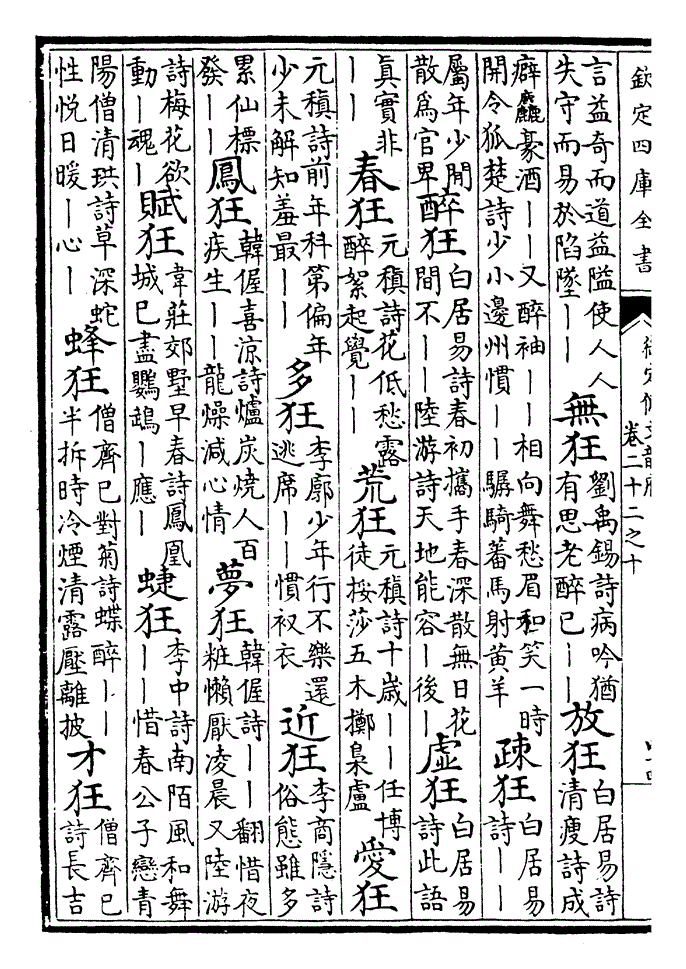 欽定四庫全書
御定佩文韻府
卷二十二之十
言益奇而道益隘使人人失守而易於陷墜——無狂劉禹錫詩病吟猶有思老醉已——放狂白居易詩清瘦詩成
癖麤豪酒——又醉袖——相向舞愁眉和笑一時開令狐楚詩少小邊州慣——驏騎蕃馬射黃羊疎狂白居易詩——
屬年少閒散爲官卑醉狂白居易詩春初攜手春深散無日花間不——陸游詩天地能容——後—虛狂白居易詩此語
眞實非——春狂元稹詩花低愁露醉絮起覺——荒狂元稹詩十歲——任博徒挼莎五木擲梟盧愛狂
元稹詩前年科第偏年少未解知羞最——多狂李廓少年行不樂還逃席——慣衩衣近狂李商隱詩俗態雖多
累仙標發——鳳狂韓偓喜涼詩爐炭燒人百疾生——龍燥減心情夢狂韓偓詩——翻惜夜粧懶厭凌晨又陸游
詩梅花欲動—魂—賦狂韋莊郊墅早春詩鳳凰城已盡鸚鵡—應—蜨狂李中詩南陌風和舞——惜春公子戀青
陽僧清珙詩草深蛇性悅日暖—心—蜂狂僧齊已對菊詩蝶醉——半拆時冷煙清露壓離披才狂僧齊已詩長吉